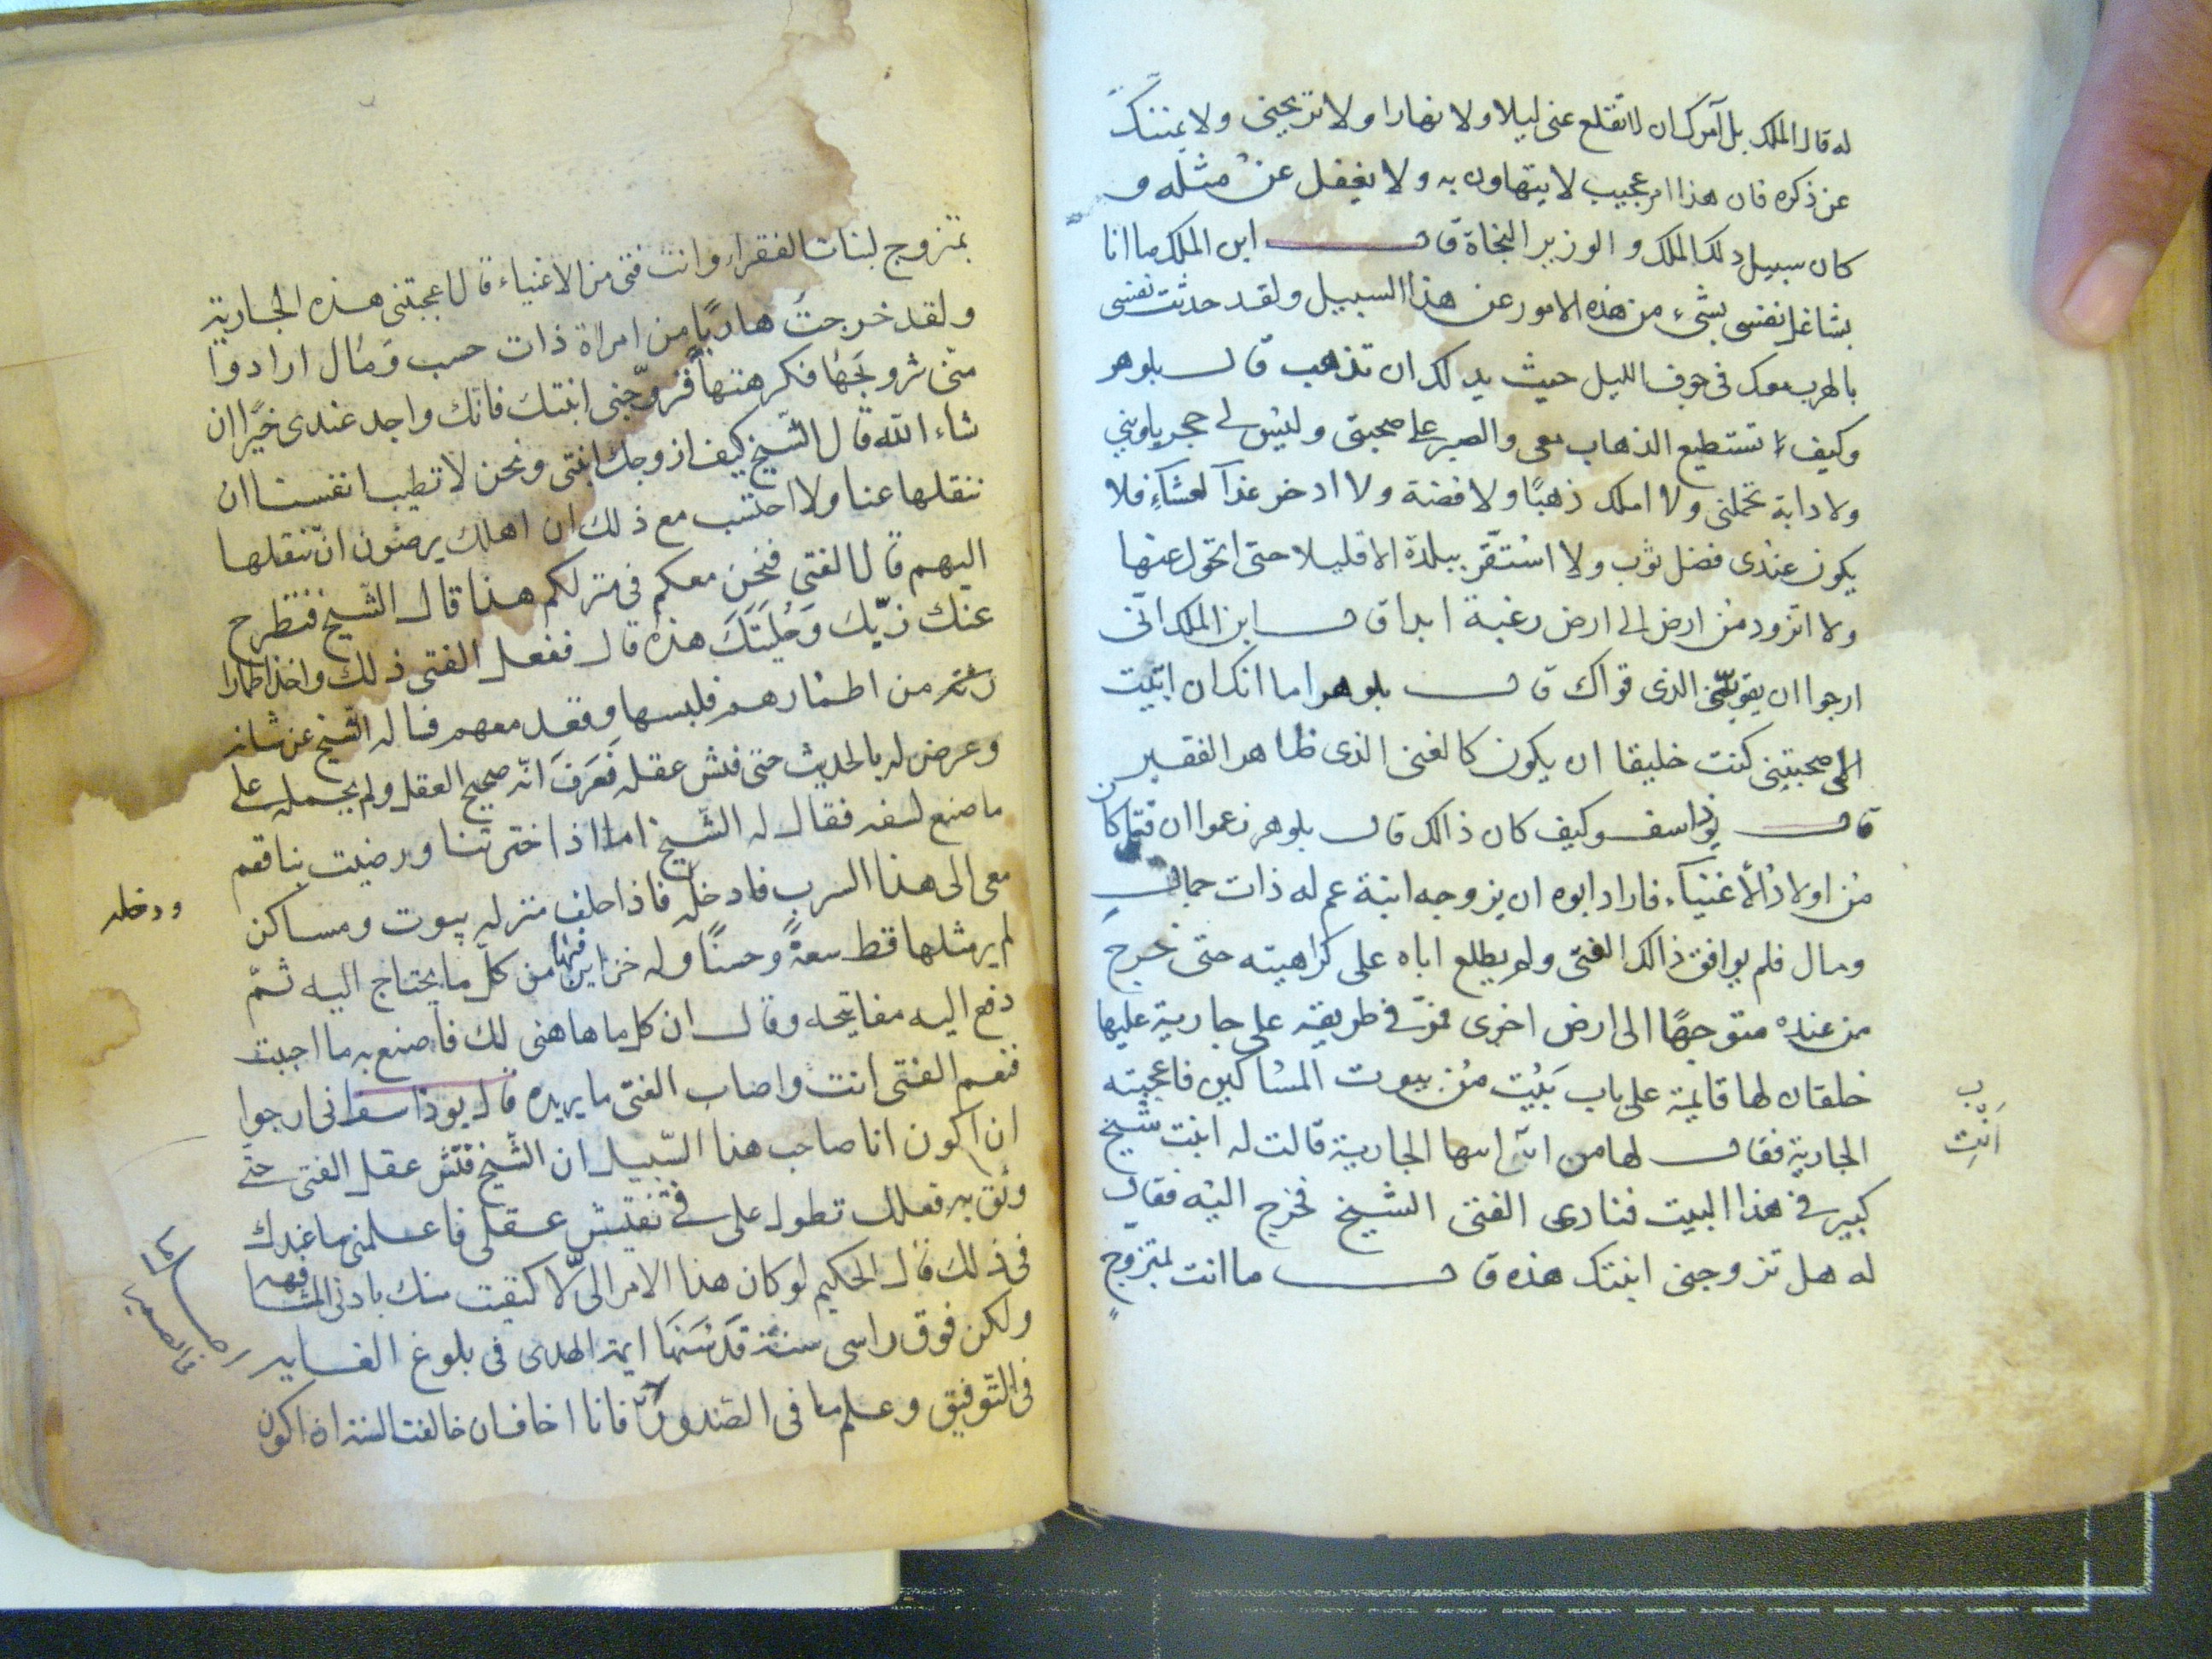 له قال الملك بل آمرك ان لا تقلع عنى ليلا ولا نهارا ولا تريحنى ولا يمننك
عن ذكره فان هذا امر عجيب لا يتهاون به ولا يغفل عن مثله و
كان سبيل ذلك الملك و الوزير النجاة قال ابن الملك ما انا
بشاغل نفسى بشىء من هذه الامور عن هذا السبيل ولقد حدثت نفسى
بالهرب معك فى جوف الليل حيث بدا لك ان تذهب قال بلوهر
وكيف تستطيع الذهاب معى والصبر على صحبتى وليس لى حجر ياوينى
ولا دابة تحملنى ولا املك ذهبًا ولا فضة ولا ادخر غدآ لعشآء فلا
يكون عندى فضل ثوب ولا استقر ببلدة الا قليلا حتى اتحول عنها
ولا اتزود من ارض الى ارض رغبة ابدا قال ابن الملك انى
ارجوا ان يقوينى الذى قواك قال بلوهر اما انك ان ابيت
الى صحبتى كنت خليقا ان يكون كالغنى الذى ظاهر الفقير
قال يوذاسف وكيف كان ذالك قال بلوهر زعموا ان فتى كان
من اولاد الأغنيآء فاراد ابوه ان يزوجه ابنة عم له ذات جمال
ومال فلم يوافق ذالك الفتى ولم يطلع اباه على كراهيته حتى خرج
من عنده متوجهًا الى ارض اخرى فمرّ فى طريقه على جارية عليها
خلقان لها قايمة على باب بَيْت من بيوت المساكين فاعجبته
الجارية فقال لها من انت ايتها الجارية قالت له ابنت شيخ
كبير فى هذا البيت فنادى الفتى الشيخ فخرج اليه فقال
له هل تزوجنى ابنتك هذه قال ما انت بمتزوج
اَنْتِ
بمتزوج لبنات الفقراء وانت فتى من الاغنياء قال اعجبتنى هذه الجارية
ولقد خرجتُ هاربًا من امراة ذات حسب وَمال ارادوا
منّى تزويجَها فكرهتها فزوّجنى ابنتك فانك واجد عندى خيًرا ان
شاء الله قال الشّيخ كيف ازوجك ابنتى ونحن لا تطيب انفسنا ان
ننقلها عنا ولا احتسب مع ذلك ان اهلك يرضون ان ننقلها
اليهم قال الفتى فنحن معكم فى منزلكم هذا قال الشّيخ فتطرح
عنك زيّك وَحُليَتَكَ هذه قال ففعل الفتى ذلك واخذ اطمارا
رثة من اطمارهم فلبسها وقعد معهم فساله الشّيخ عن شانه
وعرض له بالحديث حتى فتش عقله فَعَرَفَ انّه صحيح العقل ولم يحمله على
ما صنع لسفه فقال له الشّيخ اما اذا اخترتنا ورضيت بنا فقم
معى الى هذا السرب فادخله فاذا خلف منزله بيوت ومساكن
لم ير مثلها قط سعةً وحسنًا وله خزاين فيها من كلّ ما يحتاج اليه ثمّ
دفع اليه مفاتيحه وقال ان كل ما هاهنى لك فاصنع به ما احببت
فنعم الفتى انت واصاب الفتى ما يريده قال يوذاسف انى ارجوا
ان اكون انا صاحب هذا السّبيل ان الشّيخ فتّش عقل الفتى حتى
وثق به فعلك تطول على فى تفتيش عقلى فاعلمنى ما عندك
فى ذلك قال الحكيم لو كان هذا الامر الىّ لاكتفيت منك بادنى المشافهه
ولكن فوق راسى سنة قَدْ سَنهَا ايمة الهدى فى بلوغ الغايه
فى التّوفيق وعلم ما فى الصّدور فانا اخاف ان خالفت السنة ان اكون
ودخله